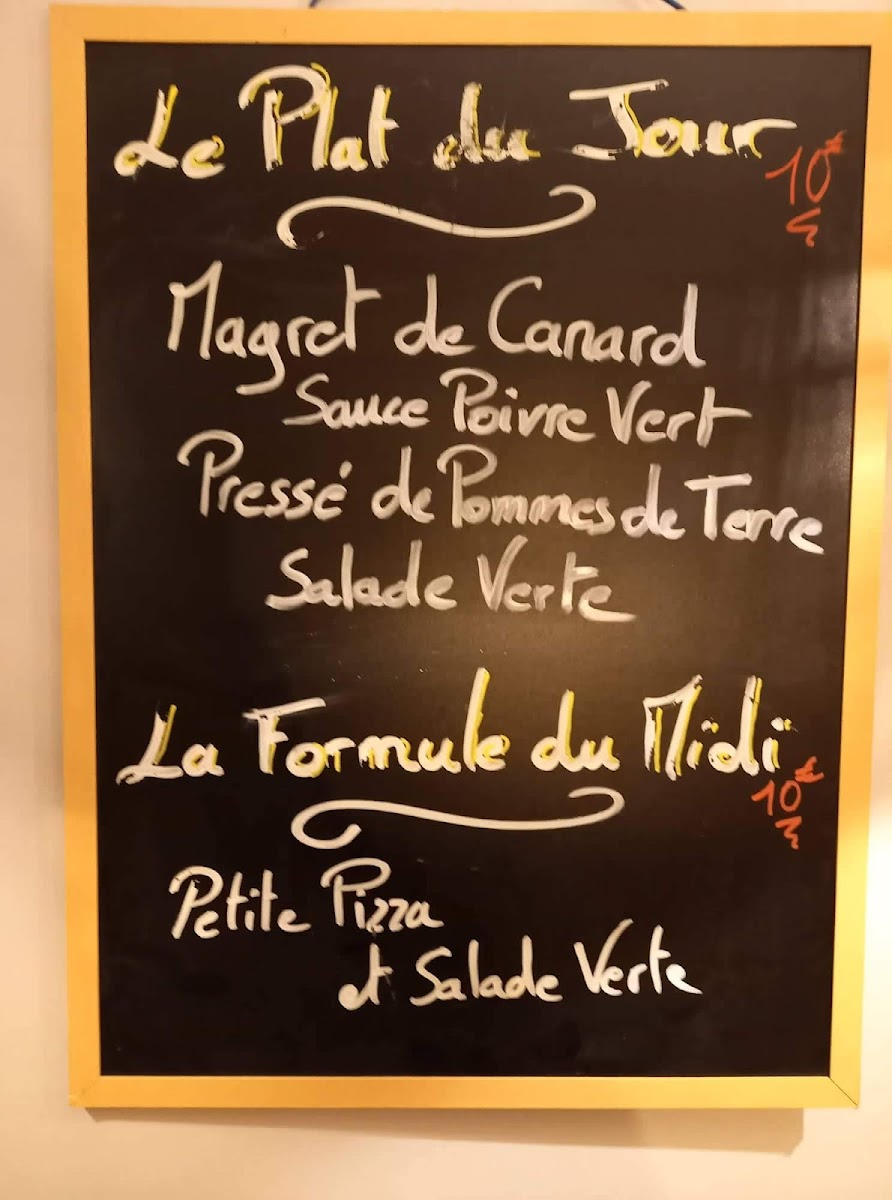 Le Plat du Jour
10€
Magret de Canard
Sauce Poivre Vert
Pressé de Pommes de Terre
Salade Verte
La Formule du Mïdï
10€
Petite Pizza
et Salade Verte